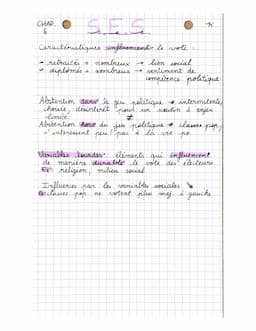 CHAP.
6
S.E.S
Caractéristiques influencent le vote :
→ retraités → nombreux → lien social
→ diplômés → nombreux → sentiment de
compétence politique
Abstention dans le jeu politique → intermittente,
choisie, désintérêt pour un scrutin à enjeu
limité ≠
Abstention hors du jeu politique → classes pop,
s'intéressent peu à la vie po
Variables lourdes : éléments qui influencent
de manière durable le vote des électeurs
Ex : religion, milieu social
Influences par les variables sociales ↘
Ex classes pop ne votent plus maj. à gauche